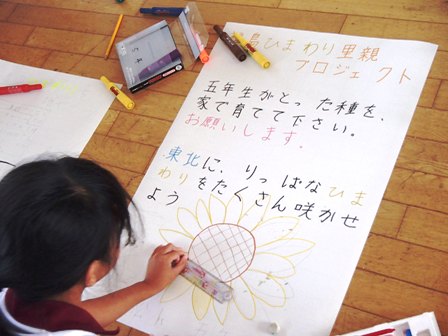 島ひまわり里親
プロジェクト
五年生がとった種を、
家で育てて下さい。
お願いします。
東北に、りっぱなひま
わりをたくさん咲かせ
よう